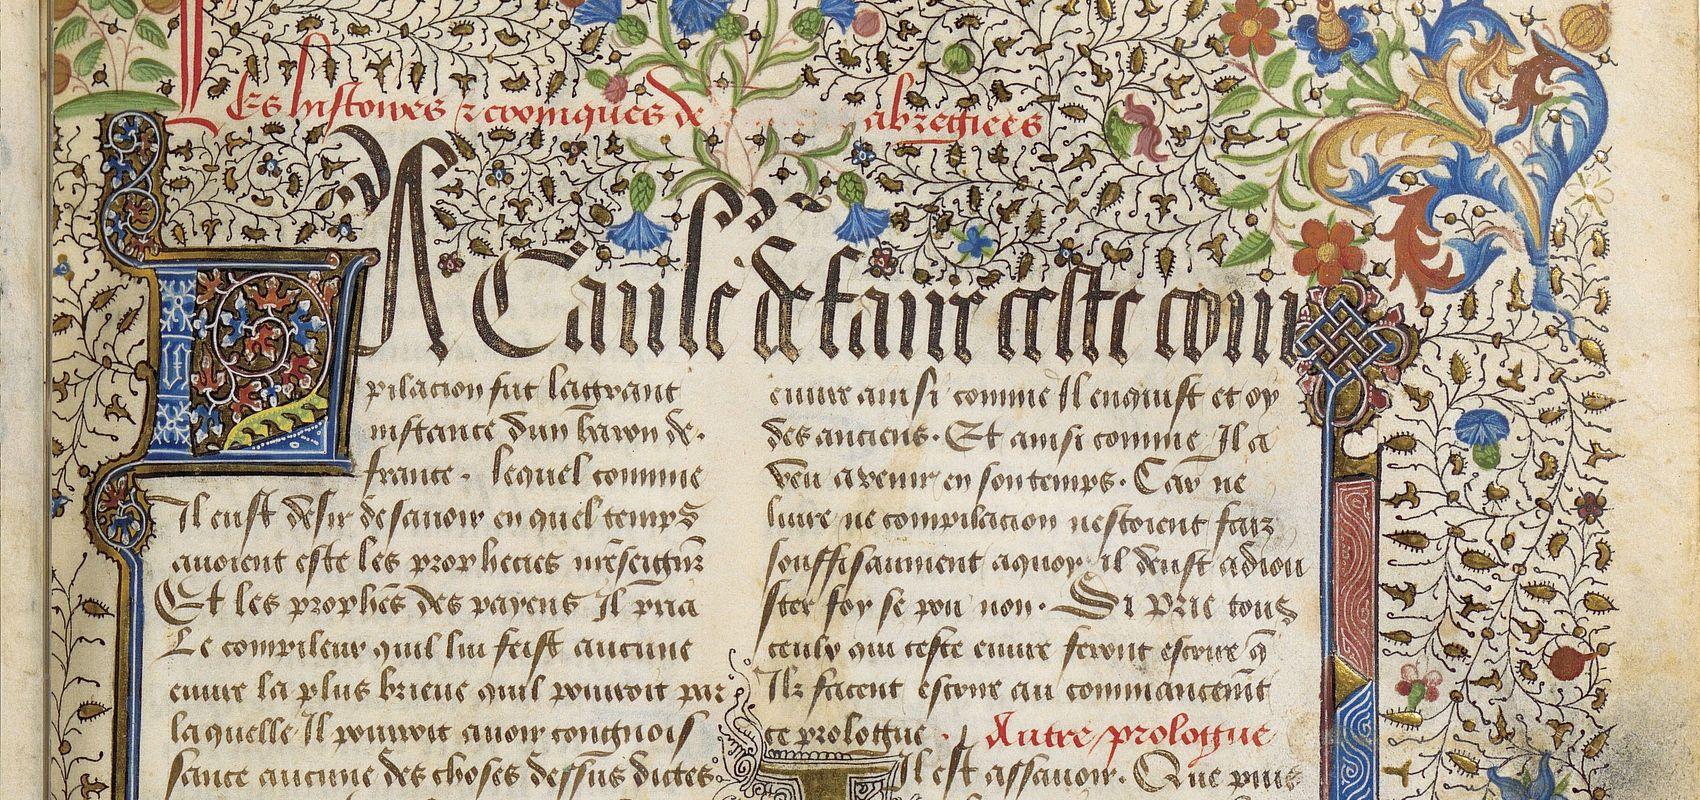 Les histoires & croniques de abregiees
LA Cause de faire ceste com
pilacion fut la grant
instance dun baron de
france . lequel comme
Il eust desir de sauoir en quel temps
auoient este les prophecies nreseignr
Et les prophes des payens Il pria
Le compileur quil lui feist aucune
euure la plus brieue quil pourroit par
laquelle Il pourroit auoir congnois
sance aucune des choses dessus dictes
euure ainsi comme Il enquist et oy
des anciens . Et ainsi comme Il a
veu auenir en son temps . Car ne
liure ne compilacion nestoient faiz
souffisaument aquoy il deust adiou
ster foy se pou non . Si prie tous
ceulx qui ceste euure feront escrire q̃
Ilz facent escrire au commancemt
ce prologue . Autre prologue
Il est assauoir . Que puis